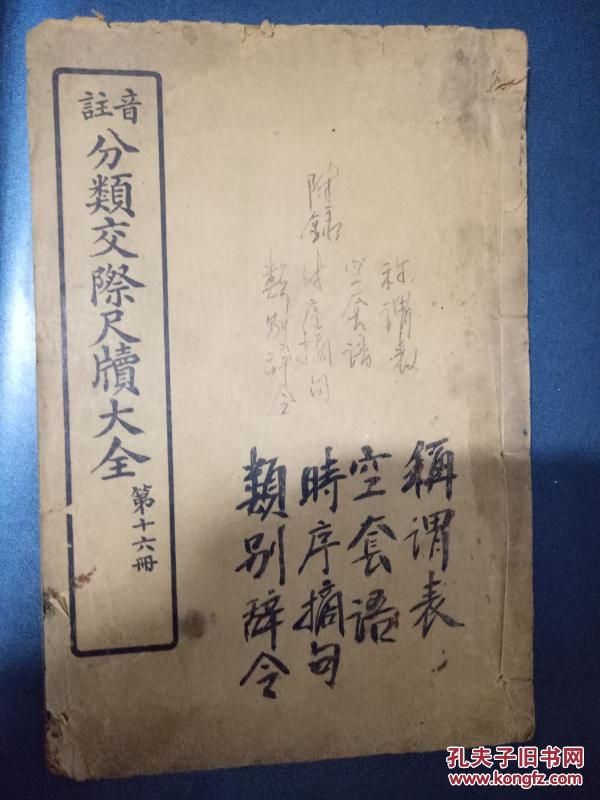 音註
分類交際尺牘大全
第十六冊
附錄
称謂表
空套语
时序摘句
類别辞令
稱謂表
空套語
時序摘句
類别辞令
孔夫子旧书网
www.kongfz.com